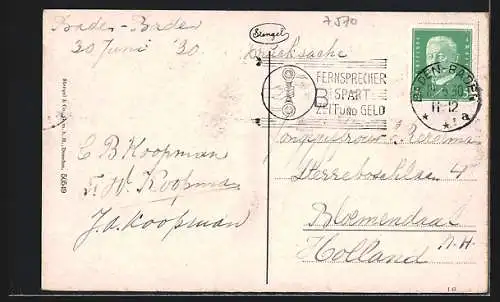 Baden-Baden
30 Juni 30.
Stengel
7510
Drucksache
FERNSPRECHER
SPART
ZEIT UND GELD
BADEN-BADEN
11-12
* a
Stengel & Co., G. m. b. H., Dresden. 50549
E B Koopman
J. W. Koopman
J. A. Koopman
Sterreboschlaan 4
Bloemendaal
N.H.
Holland